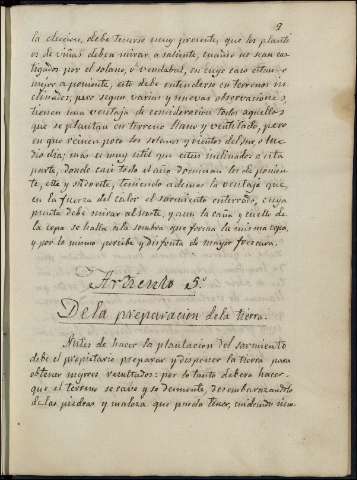 9
la eleccion, debe tenerse muy presente, que los planti
os de viñas deben mirar a saliente, cuando no sean cas
tigados por el solano, o vendabal, en cuyo caso estan
mejor a poniente, esto debe entenderse en terrenos in
clinados; pero segun varias y nuevas observaciones,
tienen una ventaja de consideracion todos aquellos
que se plantan en terreno llano y ventilado, pero
en que reinen poco los solanos y vientos del sur, o me
dio dia; mas es muy util que esten inclinados a esta
parte, donde casi todo el año dominan los de ponien
te, este y norte, teniendo ademas la ventaja que,
en la fuerza del calor el sarmiento enterrado, cuya
punta debe mirar al norte, y aun la caña y cuello de
la cepa se halla a la sombra que forma la misma cepa,
y por lo mismo percibe y disfruta de mayor frescura.
Artículo 5.º
De la preparacion de la tierra.
Antes de hacer la plantacion del sarmiento
debe el propietario preparar y disponer la tierra para
obtener mejores resultados: por lo tanto debera hacer
que el terreno se cave y se desmonte, desembarazandolo
de las piedras y maleza que pueda tener, cuidando